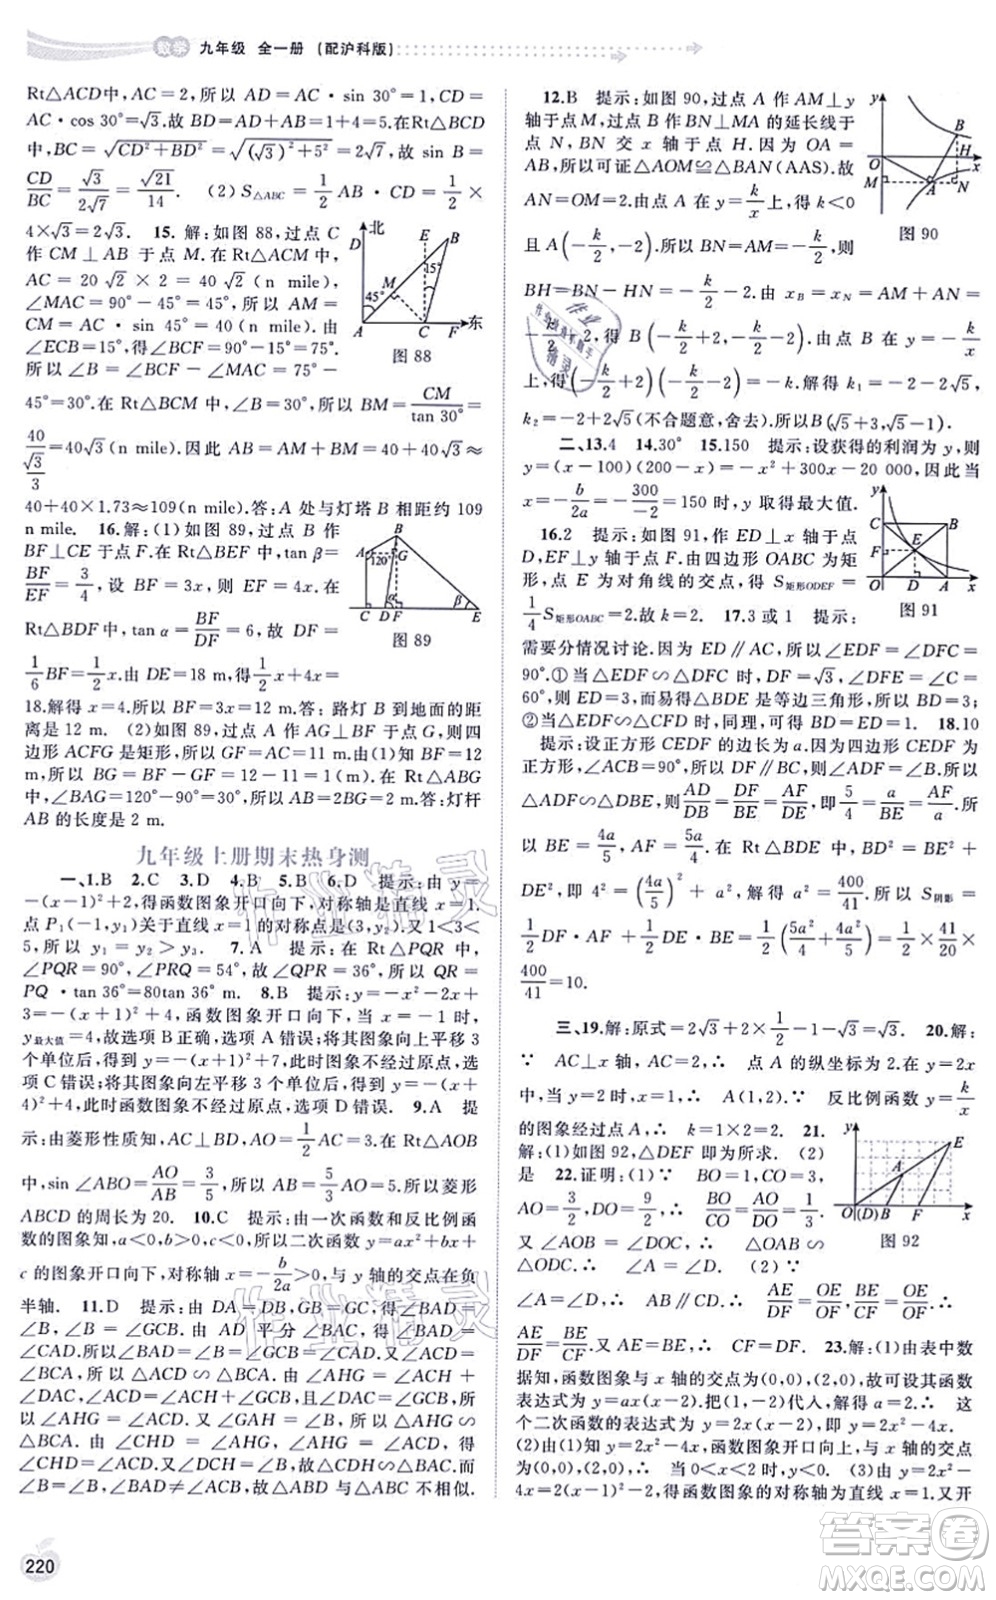 数学 九年级 全一册 (配沪科版)
Rt△ACD中,AC=2,所以 AD=AC·sin 30°=1,CD=
AC·cos 30°=√3.故 BD=AD+AB=1+4=5.在Rt△BCD
中,BC=√(CD²+BD²)=√((√3)²+5²)=2√7,故 sin B=
CD/BC=√3/(2√7)=√21/14. (2)S△ABC=1/2 AB·CD=1/2×
4×√3=2√3. 15.解:如图 88,过点 C
作 CM⊥AB于点 M.在Rt△ACM中,
AC=20√2×2=40√2(n mile),
∠MAC=90°-45°=45°,所以 AM=
CM=AC·sin 45°=40(n mile).由
∠ECB=15°知∠BCF=90°-15°=75°.
所以∠B=∠BCF-∠MAC=75°-
45°=30°.在Rt△BCM中,∠B=30°,所以BM=CM/tan 30°=
40/(√3/3)=40√3(n mile).因此AB=AM+BM=40+40√3≈
40+40×1.73≈109(n mile).答:A处与灯塔B相距约109
n mile. 16.解:(1)如图 89,过点 B作
BF⊥CE于点F.在Rt△BEF中,tan β=
BF/EF=3/4,设 BF=3x,则 EF=4x.在
Rt△BDF中,tan α=BF/DF=6.故 DF=
1/6BF=1/2x.由 DE=18 m,得 1/2x+4x=
18.解得x=4.所以BF=3x=12.答:路灯B到地面的距
离是12 m.(2)如图 89,过点A作AG⊥BF于点G,则四
边形ACFG是矩形,所以GF=AC=11.由(1)知BF=12
m,所以 BG=BF-GF=12-11=1.在Rt△ABG中,
∠BAG=120°-90°=30°,所以AB=2BG=2 m.答:灯杆
AB的长度是2 m.
九年级上册期末热身测
一、1.B 2.C 3.D 4.B 5.B 6.D 提示:由 y=
-(x-1)²+2,得函数图象开口向下,对称轴是直线x=1.
点P₁(-1,y₁)关于直线x=1的对称点是(3,y₁).又1<3<
5,所以 y₁=y₂>y₃. 7.A 提示:在Rt△PQR中,
∠PQR=90°,∠PRQ=54°,故∠QPR=36°.所以QR=
PQ·tan 36°=80tan 36° m. 8.B 提示:y=-x²-2x+
3=-(x+1)²+4,函数图象开口向下,当 x=-1时,
y最大值=4,故选项B正确,选项A错误;将其图象向上平移3
个单位后,此时图象不经过原点,选
项C错误;将其图象向左平移3个单位后,得 y=-(x+
4)²+4,此时函数图象不经过原点,选项D错误. 9.A 提
示:由菱形性质知,AC⊥BD,AO=1/2AC=3.在Rt△AOB
中,sin∠ABO=AO/AB=3/5,所以AO/AB=3/5,AB=5.所以菱形
ABCD的周长为20. 10.C 提示:由一次函数和反比例函
数的图象知,a<0,b>0,c>0,所以二次函数 y=ax²+bx+
c的图象开口向下,对称轴 x=-b/2a>0,与 y轴的交点在负
半轴. 11.D 提示:由 DA=DB,GB=GC,得∠BAD=
∠B,∠B=∠GCB.由AD平分∠BAC,得∠BAD=
∠CAD.所以∠B=∠BAD=∠CAD=∠GCB.又∠B=∠B,∠BCA=
∠BCA,所以△DAC∽△ABC.由∠GAH=∠ACH+
∠DAC,∠HAC=∠CAD=∠GCB,得∠GAH=∠ACH+
∠GCB=∠ACB.又∠AGH=∠B+∠GCB,∠GAH∽
△ABC.由∠CHD=∠CAD+∠ACH,得∠CHD=
∠GAH.又∠DCH=∠GCB=∠B,所以△CHD∽△BCA.
∠BAD=∠B,∠BAD≠∠BCA.故△DAB与△ABC不相似.
12.B 提示:如图 90,过点A作AM⊥y
轴于点M,过点B作BN⊥MA的延长线于
点N,BN交x轴于点H.因为OA=
AB,所以可证△AOM≌△BAN(AAS).故
AN=OM=2.由点 A在 y=k/x上,得 k<0
且A(-k/2,-2).所以BN=AM=-k/2,则
BH=BN-HN=-k/2-2.由 x_B=x_N=AM+AN=
-k/2+2,得B(-k/2+2,-k/2-2).由点B在y=k/x上,
得(-k/2+2)(-k/2-2)=k.解得 k₁=-2-2√5,
k₂=-2+2√5(不合题意,舍去).所以B(√5+3,√5-1).
二、13.4 14.30° 15.150 提示:设获得的利润为 y,则
y=(x-100)(200-x)=-x²+300x-20 000,因此当
x=-b/2a=-300/-2=150时,y取得最大值.
16.2 提示:如图 91,ED⊥x轴于点
D,EF⊥y轴于点F.由四边形OABC为矩
形,点E为对角线的交点,得S矩形ODEF=
1/4S矩形OABC=2.故k=2. 17.3或1 提示:
需要分情况讨论.因为ED∥AC,所以∠EDF=∠DFC=
90°.①当△EDF∽△CFD时,DF=√3,∠DEF=∠C=
60°.所以ED=3.可得△BDE为等边三角形,所以BE=3;
②当△EDF∽△CFD时,同理,可得BE=1. 18.10
提示:设正方形CEDF的边长为a.因为四边形CEDF为
正方形,∠ACB=90°,所以∠AFD=∠DEB=90°.所以
△ADF∽△DBE,则AD/DB=DF/BE=AF/DE,即5/4=a/BE=AF/a.所
以BE=4a/5,AF=5a/4.在Rt△BDE中,BD²=BE²+
DE²,即4²=(4a/5)²+a²,所以 a²=400/41.所以S阴影=
1/2DF·AF+1/2DE·BE=1/2(5a²/4+4a²/5)=1/2×41/20×
400/41=10.
三、19.解:原式=2√3+2×1/2-1-√3=√3. 20.解:
∵ AC⊥x轴,AC=2,∴ 点A的纵坐标为2.∵ y=2x
中,当y=2时,x=1,∴ A(1,2).∵ 反比例函数y=k/x
的图象经过点A,∴ k=1×2=2. 21.
解:(1)如图 92,△DEF即为所求. (2)
是 22.证明:(1)∵ BO=1,CO=3,
AO=3/2,DO=9/2,∴ BO/CO=AO/DO=1/3.
又∵∠AOB=∠DOC,∴ △OAB∽
△ODC. (2)∵ △OAB∽△ODC,∴
∠A=∠D.∴ AB∥CD.∴ AE/DF=OE/OF,BE/CF=OE/OF.∴
AE/DF=BE/CF.又∵ AE=BE,∴ CF=DF. 23.解:(1)由表中数
据知,函数图象与x轴的交点为(0,0),(2,0),∴ 设函数
表达式为y=ax(x-2).把(1,2)代入,得 a=-2.∴ 这
个二次函数的表达式为y=-2x(x-2),即y=-2x²+4x.
(2)由(1)知y=-2x²+4x,函数图象开口向下,与x轴的交点为
(0,0),(2,0),∴ 当0<x<2时,y>0. (3)由函数y=
-2x²+4x=-2(x-1)²+2,得函数图象对称轴为直线x=1,又开
北
东
图 88
图 89
图 90
图 91
图 92
作业精灵
答案圈
MXQE.COM
220